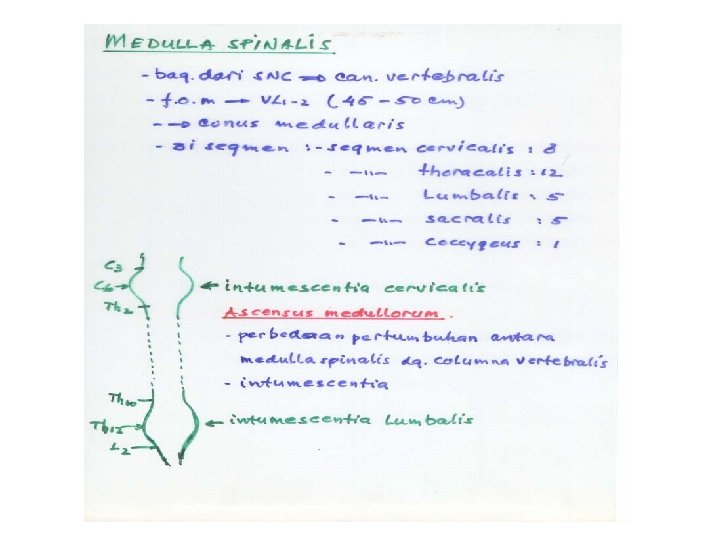 MEDULLA SPINALIS
- bag. dari SNC → can. vertebralis
- f.o.m → VL1-2 (45-50 cm)
- → conus medullaris
- 31 segmen : - segmen cervicalis : 8
- —"— thoracalis : 12
- —"— Lumbalis : 5
- —"— sacralis : 5
- —"— coccygeus : 1
C3
C6 →
Th2
← intumescentia cervicalis
Ascensus medullorum.
- perbedaan pertumbuhan antara
medulla spinalis dg. columna vertebralis
- intumescentia
Th10
Th12 →
L2
← intumescentia Lumbalis